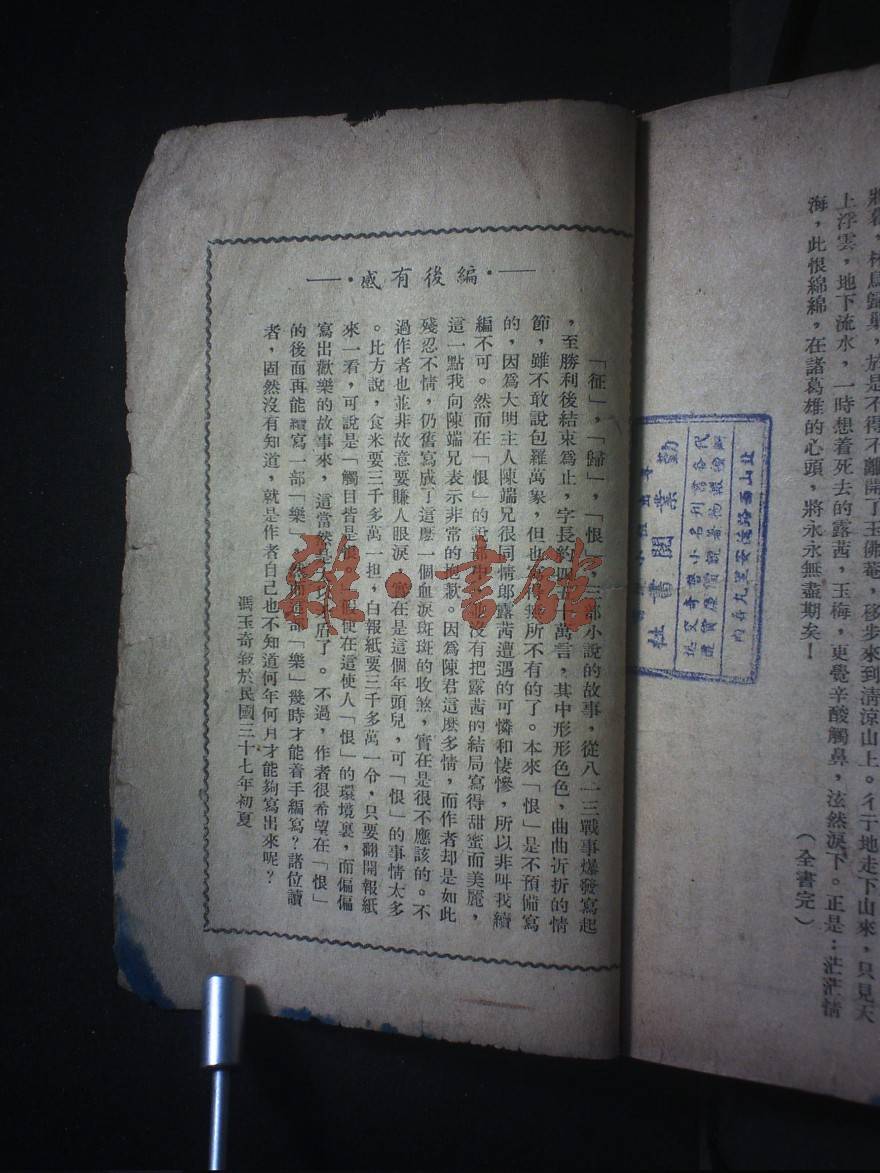 將暮，林鳥歸巢，於是不得不離開了玉佛菴，移步來到淸涼山上。彳亍地走下山來，只見天
上浮雲，地下流水，一時想着死去的露茜，玉梅，更覺辛酸觸鼻，泫然淚下。正是：茫茫情
海，此恨綿綿，在諸葛雄的心頭，將永永無盡期矣！
（全書完）
編後有感
「征」，「歸」，「恨」，三部小說的故事，從八一三戰事爆發寫起
，至勝利後結束爲止，字長約四五十萬言，其中形形色色，曲曲折折的情
節，雖不敢說包羅萬象，但也 所不有的了。本來「恨」是不預備寫
的，因爲大明主人陳端兄很同情郎露茜遭遇的可憐和悽慘，所以非叫我續
編不可。然而在「恨」的說部中， 沒有把露茜的結局寫得甜蜜而美麗，
這一點我向陳端兄表示非常的抱歉。因爲陳君這麼多情，而作者却是如此
殘忍不情，仍舊寫成了這麼一個血淚斑斑的收煞，實在是很不應該的。不
過作者也並非故意要賺人眼淚，實在是這個年頭兒，可「恨」的事情太多
。比方說，食米要三千多萬一担，白報紙要三千多萬一令，只要翻開報紙
來一看，可說是「觸目皆是恨」，假使在這使人「恨」的環境裏，而偏偏
寫出歡樂的故事來，這當然是 矛盾了。不過，作者很希望在「恨」
的後面再能續寫一部「樂」，然而這部「樂」幾時才能着手編寫？諸位讀
者，固然沒有知道，就是作者自己也不知道何年何月才能夠寫出來呢？
馮玉奇寫於民國三十七年初夏
勤業閱書社
北山西路德安里九弄內
雜·書館